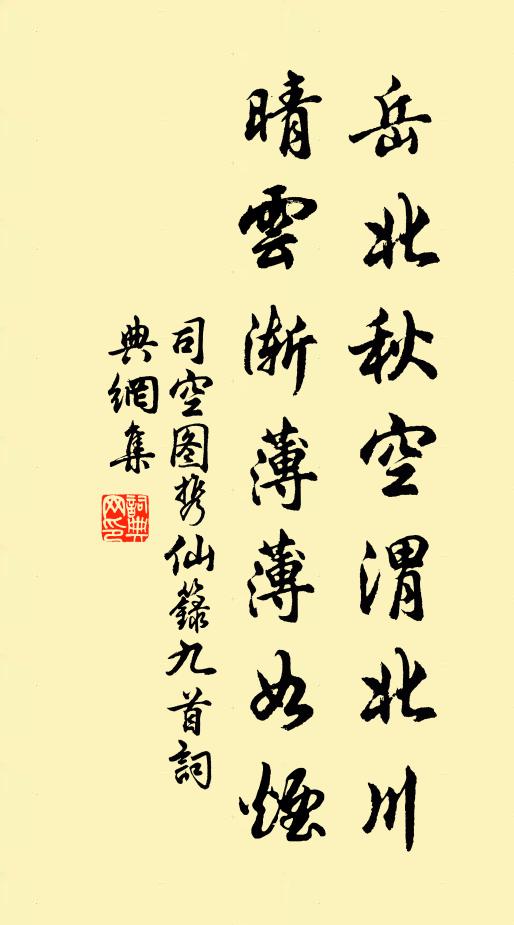 岳北秋空渭北川
晴雲漸薄薄如煙
司空图携仙籙九首詞
典網集
詞典網印